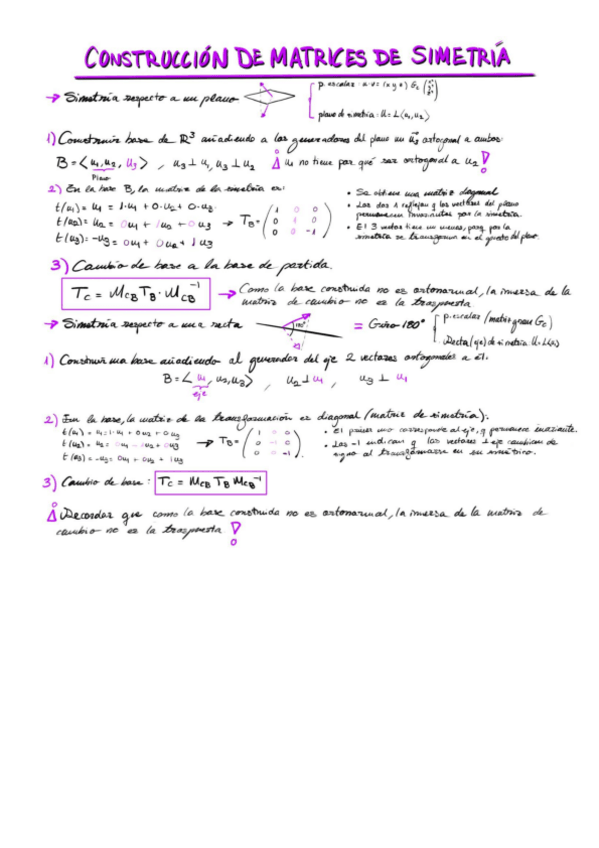 CONSTRUCCIÓN DE MATRICES DE SIMETRÍA
→ Simetría respecto a un plano
p. escalar:
plano de simetría: U = L(u₁, u₂)
1) Construir base de ℝ³ añadiendo a los generadores del plano un u₃ ortogonal a ambos:
B = < u₁, u₂, u₃ > , u₃ ⊥ u₁, u₃ ⊥ u₂ ¡ u₁ no tiene por qué ser ortogonal a u₂ !
Plano
2) En la base B, la matriz de la simetría es:
t(u₁) = u₁ = 1·u₁ + 0·u₂ + 0·u₃
t(u₂) = u₂ = 0u₁ + 1u₂ + 0u₃ → T_B = ( 1 0 0
0 1 0
0 0 -1 )
t(u₃) = -u₃ = 0u₁ + 0u₂ + 1u₃
• Se obtiene una matriz diagonal
• Los dos 1 reflejan q los vectores del plano
permanecen invariantes por la simetría.
• El 3 vector tiene un menos, porq por la
simetría se transforma en el opuesto del plano.
3) Cambio de base a la base de partida.
T_C = M_CB T_B · M_CB⁻¹ → Como la base construida no es ortonormal, la inversa de la
matriz de cambio no es la traspuesta
→ Simetría respecto a una recta 180° = Giro 180°
p. escalar (matriz gram G_C)
Recta (eje) de simetría U = L(u₁)
1) Construir una base añadiendo al generador del eje 2 vectores ortogonales a él.
B = < u₁, u₂, u₃ > , u₂ ⊥ u₁ , u₃ ⊥ u₁
eje
2) En la base, la matriz de la transformación es diagonal (matriz de simetría):
t(u₁) = u₁ = 1·u₁ + 0u₂ + 0u₃
t(u₂) = u₂ = 0u₁ - 1u₂ + 0u₃ → T_B = ( 1 0 0
0 -1 0
0 0 -1 )
t(u₃) = -u₃ = 0u₁ + 0u₂ + 1u₃
• El primer uno corresponde al eje, q permanece invariante.
• Los -1 indican q los vectores ⊥ eje cambian de
signo al transformarse en su simétrico.
3) Cambio de base: T_C = M_CB T_B M_CB⁻¹
¡ Recordar que como la base construida no es ortonormal, la inversa de la matriz de
cambio no es la traspuesta !